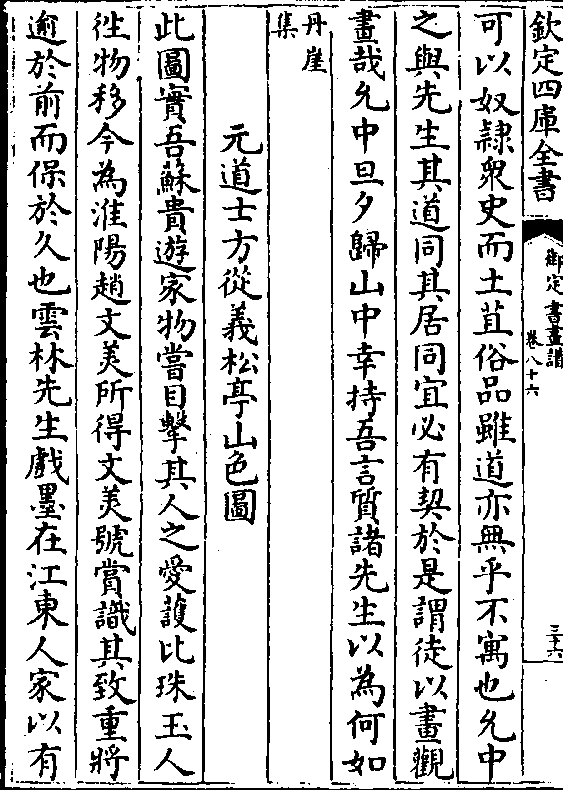 欽定四庫全書
御定書畫譜
卷八十六
三十六
可以奴隸衆史而土苴俗品雖道亦無乎不寓也允中
之與先生其道同其居同宜必有契於是謂徒以畫觀
畫哉允中旦夕歸山中幸持吾言質諸先生以為何如
丹崖
集
元道士方從義松亭山色圖
此圖實吾蘇貴遊家物嘗目擊其人之愛護比珠玉人
徃物移今為淮陽趙文美所得文美號賞識其致重將
逾於前而保於久也雲林先生戲墨在江東人家以有